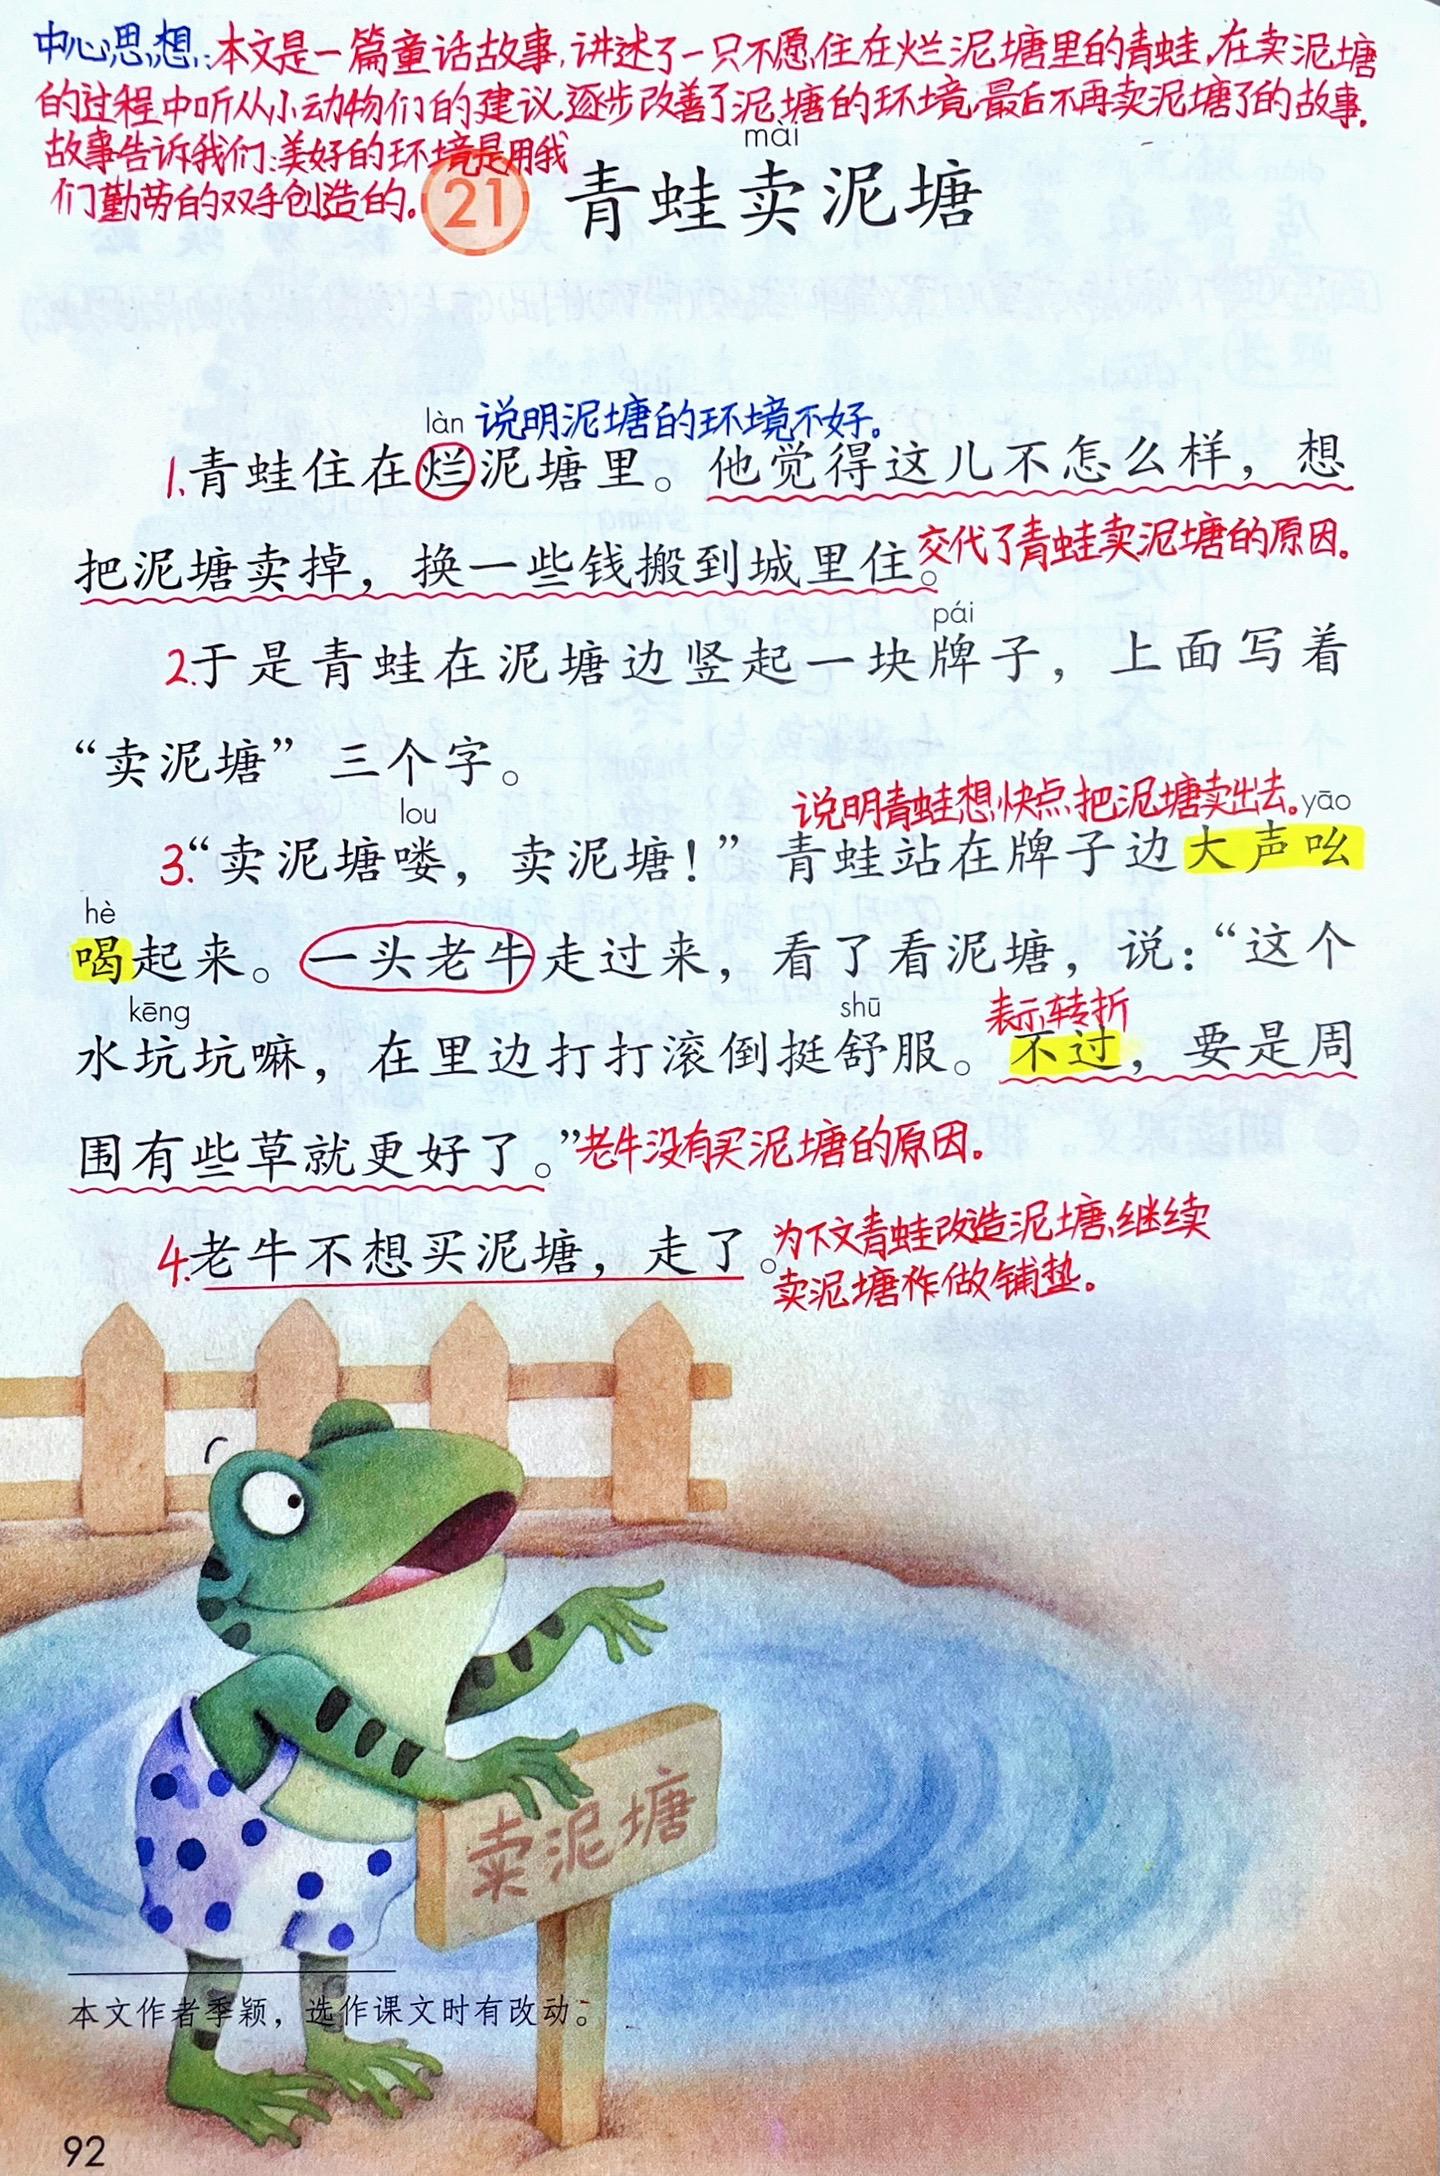 中心思想:本文是一篇童话故事,讲述了一只不愿住在烂泥塘里的青蛙,在卖泥塘
的过程中听从小动物们的建议,逐步改善了泥塘的环境,最后不再卖泥塘了的故事.
故事告诉我们:美好的环境是用我
们勤劳的双手创造的。
mài
21 青蛙卖泥塘
làn 说明泥塘的环境不好。
1.青蛙住在烂泥塘里。他觉得这儿不怎么样，想
把泥塘卖掉，换一些钱搬到城里住。交代了青蛙卖泥塘的原因。
pái
2.于是青蛙在泥塘边竖起一块牌子，上面写着
“卖泥塘”三个字。
说明青蛙想快点把泥塘卖出去。
lou yāo
3.“卖泥塘喽，卖泥塘！”青蛙站在牌子边大声吆
hè
喝起来。一头老牛走过来，看了看泥塘，说：“这个
kēng shū 表示转折
水坑坑嘛，在里边打打滚倒挺舒服。不过，要是周
围有些草就更好了。”老牛没有买泥塘的原因。
4.老牛不想买泥塘，走了。为下文青蛙改造泥塘,继续
卖泥塘作做铺垫。
卖泥塘
本文作者季颖，选作课文时有改动。
92